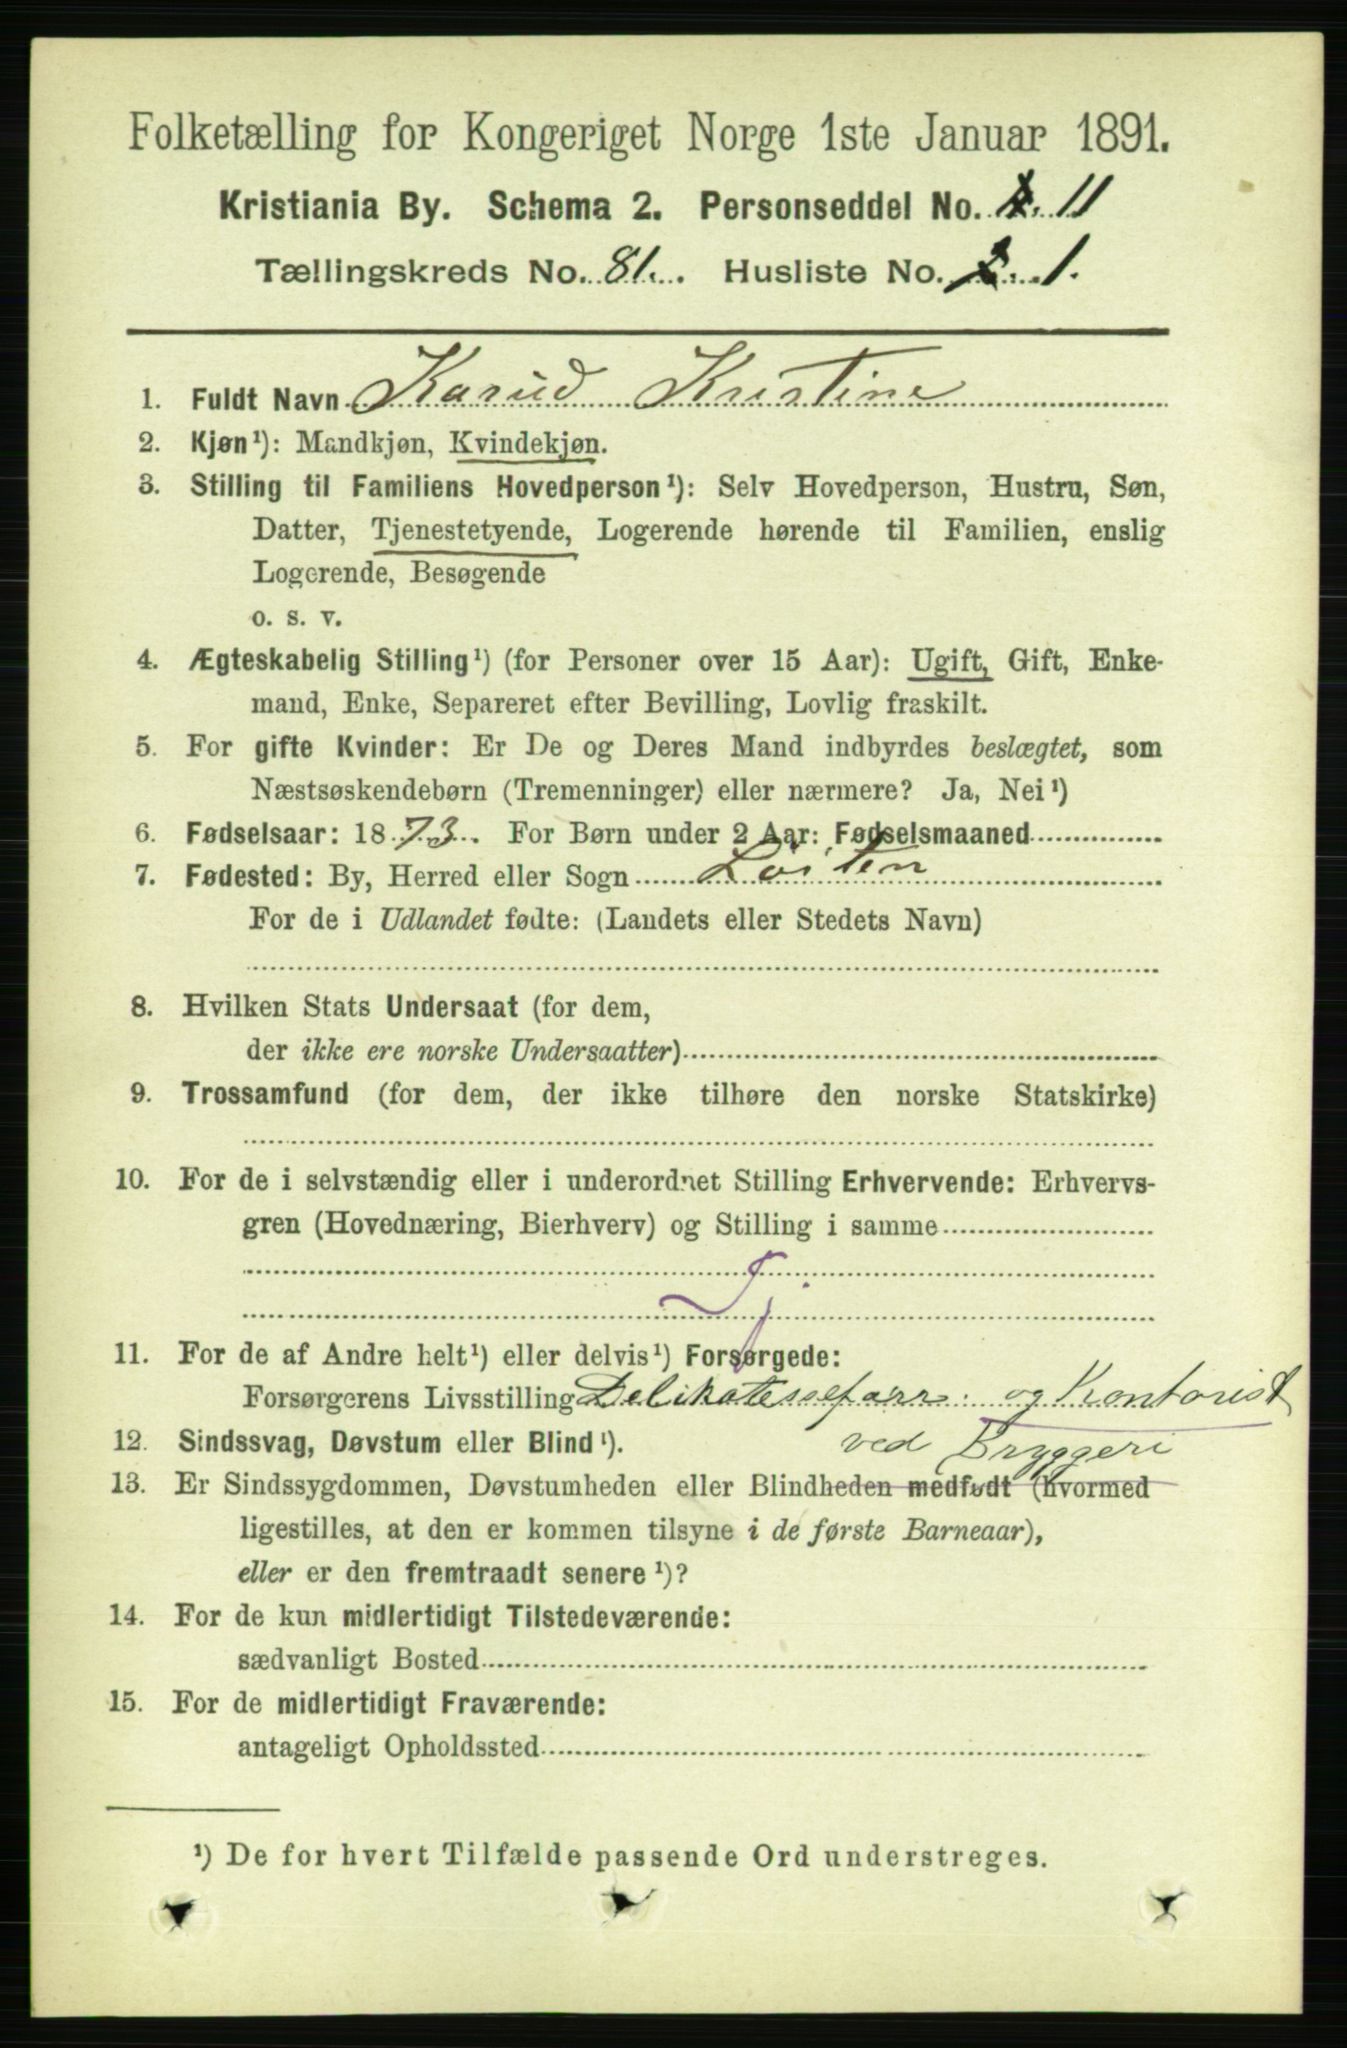 Folketælling for Kongeriget Norge 1ste Januar 1891.
Kristiania By. Schema 2. Personseddel No. 11
Tællingskreds No. 81. Husliste No. 2 1.
1. Fuldt Navn Karud Kristine
2. Kjøn¹): Mandkjøn, Kvindekjøn.
3. Stilling til Familiens Hovedperson¹): Selv Hovedperson, Hustru, Søn,
Datter, Tjenestetyende, Logerende hørende til Familien, enslig
Logerende, Besøgende
o. s. v.
4. Ægteskabelig Stilling¹) (for Personer over 15 Aar): Ugift, Gift, Enke-
mand, Enke, Separeret efter Bevilling, Lovlig fraskilt.
5. For gifte Kvinder: Er De og Deres Mand indbyrdes beslægtet, som
Næstsøskendebørn (Tremenninger) eller nærmere? Ja, Nei¹)
6. Fødselsaar: 1873. For Børn under 2 Aar: Fødselsmaaned
7. Fødested: By, Herred eller Sogn Löiten
For de i Udlandet fødte: (Landets eller Stedets Navn)
8. Hvilken Stats Undersaat (for dem,
der ikke ere norske Undersaatter)
9. Trossamfund (for dem, der ikke tilhøre den norske Statskirke)
10. For de i selvstændig eller i underordnet Stilling Erhvervende: Erhvervs-
gren (Hovednæring, Bierhverv) og Stilling i samme
Tj.
11. For de af Andre helt¹) eller delvis¹) Forsørgede:
Forsørgerens Livsstilling Delikatesseforr. og Kontorist
12. Sindssvag, Døvstum eller Blind¹). ved Bryggeri
13. Er Sindssygdommen, Døvstumheden eller Blindheden medfødt (hvormed
ligestilles, at den er kommen tilsyne i de første Barneaar),
eller er den fremtraadt senere¹)?
14. For de kun midlertidigt Tilstedeværende:
sædvanligt Bosted
15. For de midlertidigt Fraværende:
antageligt Opholdssted
¹) De for hvert Tilfælde passende Ord understreges.